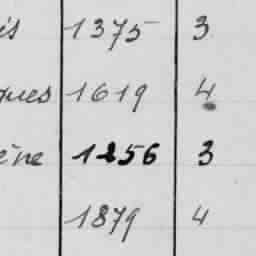 is 1375 3
ques 1619 4
ène 1256 3
1879 4